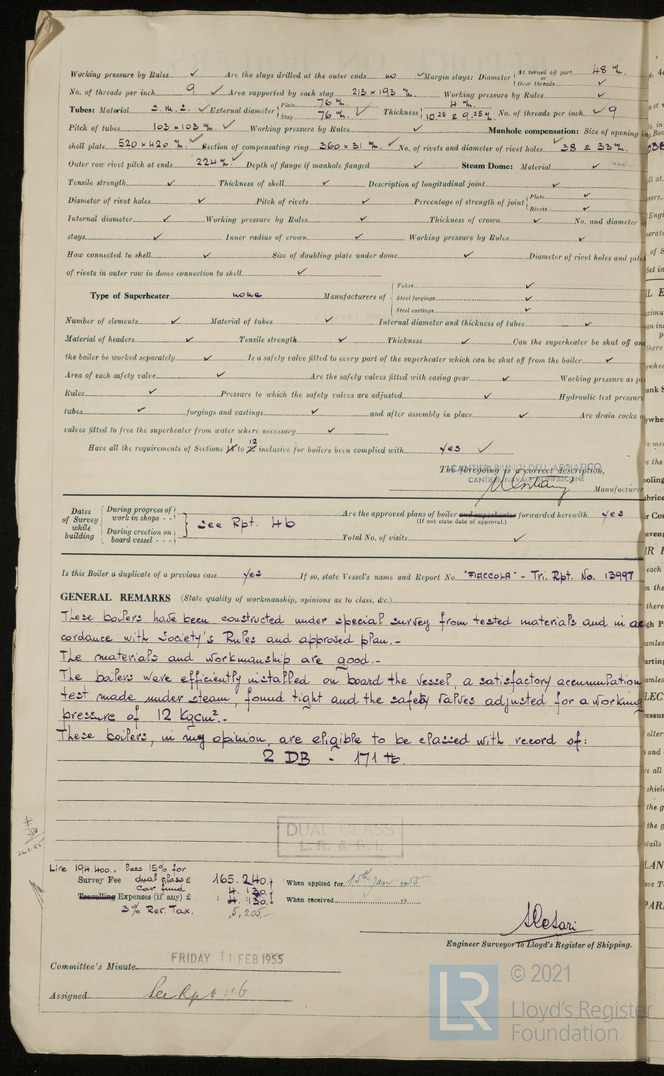 Working pressure by Rules ✓ Are the stays drilled at the outer ends no ✓ Margin stays: Diameter { At turned off part 48 m/m. or Over threads ✓
No. of threads per inch 9 ✓ Area supported by each stay 213 x 193 m/m. ✓ Working pressure by Rules ✓
Tubes: Material S.M.S. ✓ External diameter { Plain 76 m/m. Stay 76 m/m. ✓ Thickness { 4 m/m. 10,25 & 9,25 m/m ✓ No. of threads per inch ✓ 9
Pitch of tubes 103 x 103 m/m. ✓ Working pressure by Rules ✓ Manhole compensation: Size of opening in
shell plate 520 x 420 m/m. ✓ Section of compensating ring 360 x 31 m/m. ✓ No. of rivets and diameter of rivet holes 38 & 33 m/m.
Outer row rivet pitch at ends 224 m/m. ✓ Depth of flange if manhole flanged ✓ Steam Dome: Material ✓
Tensile strength ✓ Thickness of shell ✓ Description of longitudinal joint ✓
Diameter of rivet holes ✓ Pitch of rivets ✓ Percentage of strength of joint { Plate ✓ Rivets ✓
Internal diameter ✓ Working pressure by Rules ✓ Thickness of crown ✓ No. and diameter
stays ✓ Inner radius of crown ✓ Working pressure by Rules ✓
How connected to shell ✓ Size of doubling plate under dome ✓ Diameter of rivet holes and pitch
of rivets in outer row in dome connection to shell ✓
Type of Superheater none Manufacturers of { Tubes ✓ Steel forgings ✓ Steel castings ✓
Number of elements ✓ Material of tubes ✓ Internal diameter and thickness of tubes ✓
Material of headers ✓ Tensile strength ✓ Thickness ✓ Can the superheater be shut off and
the boiler be worked separately ✓ Is a safety valve fitted to every part of the superheater which can be shut off from the boiler ✓
Area of each safety valve ✓ Are the safety valves fitted with easing gear ✓ Working pressure as per
Rules ✓ Pressure to which the safety valves are adjusted ✓ Hydraulic test pressure
tubes ✓ forgings and castings ✓ and after assembly in place ✓ Are drain cocks or
valves fitted to free the superheater from water where necessary ✓
Have all the requirements of Sections 1 to 12 inclusive for boilers been complied with yes ✓
CANTIERI RIUNITI DELL'ADRIATICO
The foregoing is a correct description,
CANTIERE DI MONFALCONE
Manufacturer
Dates of Survey while building { During progress of work in shops - - During erection on board vessel - - - } See Rpt. 4b
Are the approved plans of boiler and superheater forwarded herewith yes
(If not state date of approval.)
Total No. of visits ✓
Is this Boiler a duplicate of a previous case yes If so, state Vessel's name and Report No. "FIACCOLA" - Tri. Rpt. No. 13997
GENERAL REMARKS (State quality of workmanship, opinions as to class, &c.)
These boilers have been constructed under special survey from tested materials and in ac
cordance with Society's Rules and approved plan.-
The materials and workmanship are good.-
The boilers were efficiently installed on board the vessel, a satisfactory accumulation
test made under steam, found tight and the safety valves adjusted for a working
pressure of 12 Kgcm².-
These boilers, in my opinion, are eligible to be classed with record of:
2 DB - 171 lb.
DUAL CLASS
L.R. & R.I.
Lire 194.400.. less 15% for
Survey Fee dual class £ 165.240.
Car fund 4.130.
Travelling Expenses (if any) £ 4.130.
3% Rer. Tax. 5,205.
When applied for 15th Jan 1955
When received 19
Engineer Surveyor to Lloyd's Register of Shipping.
Committee's Minute FRIDAY 11 FEB 1955
Assigned See Rpt 4b
© 2021
LR
Lloyd's Register
Foundation